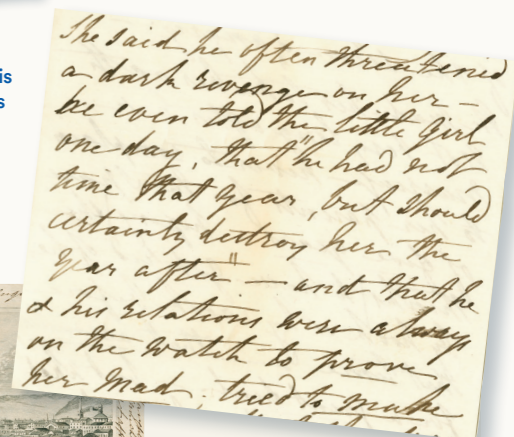 is
s
She said he often threatened
a dark revenge on her –
he even told the little girl
one day, that "he had not
time that year, but should
certainly destroy her the
year after" – and that he
& his relations were always
on the watch to prove
her mad. tried to make